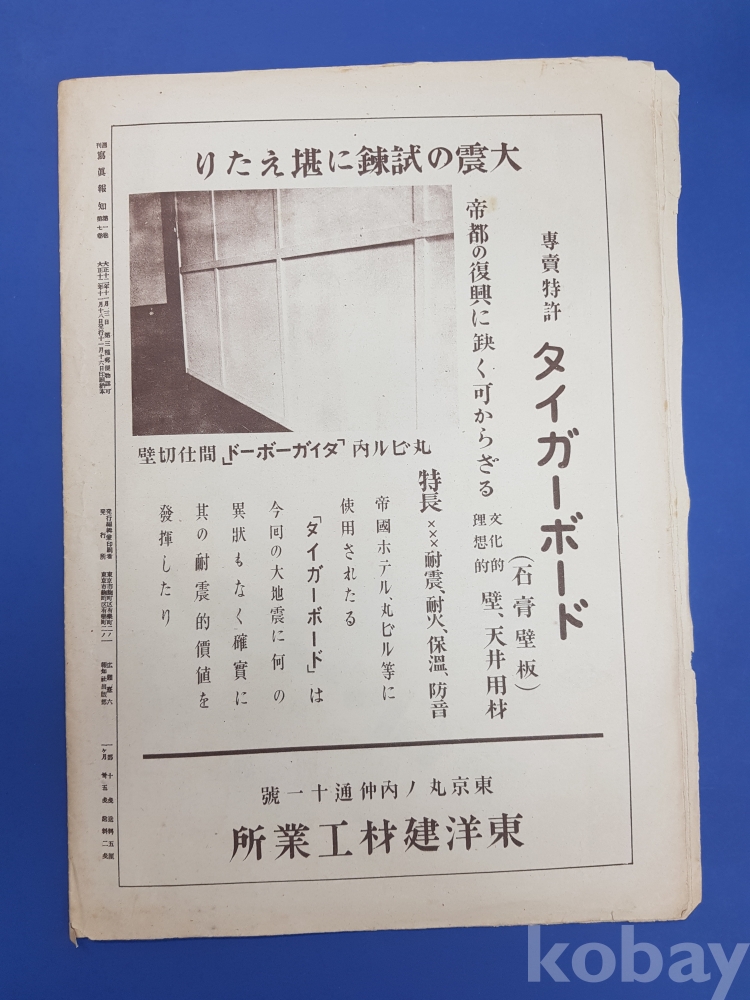 大震の試錬に堪えたり
専賣特許
タイガーボード
(石膏壁板)
帝都の復興に缺く可からざる
文化的
理想的
壁、天井用材
丸ビル内「タイガーボード」間仕切壁
特長×××耐震、耐火、保溫、防音
帝國ホテル、丸ビル等に
使用されたる
「タイガーボード」は
今回の大地震に何の
異狀もなく確實に
其の耐震的價値を
發揮したり
東京丸ノ内仲通十一號
東洋建材工業所
週刊
寫眞報知
第一卷
第七號
kobay